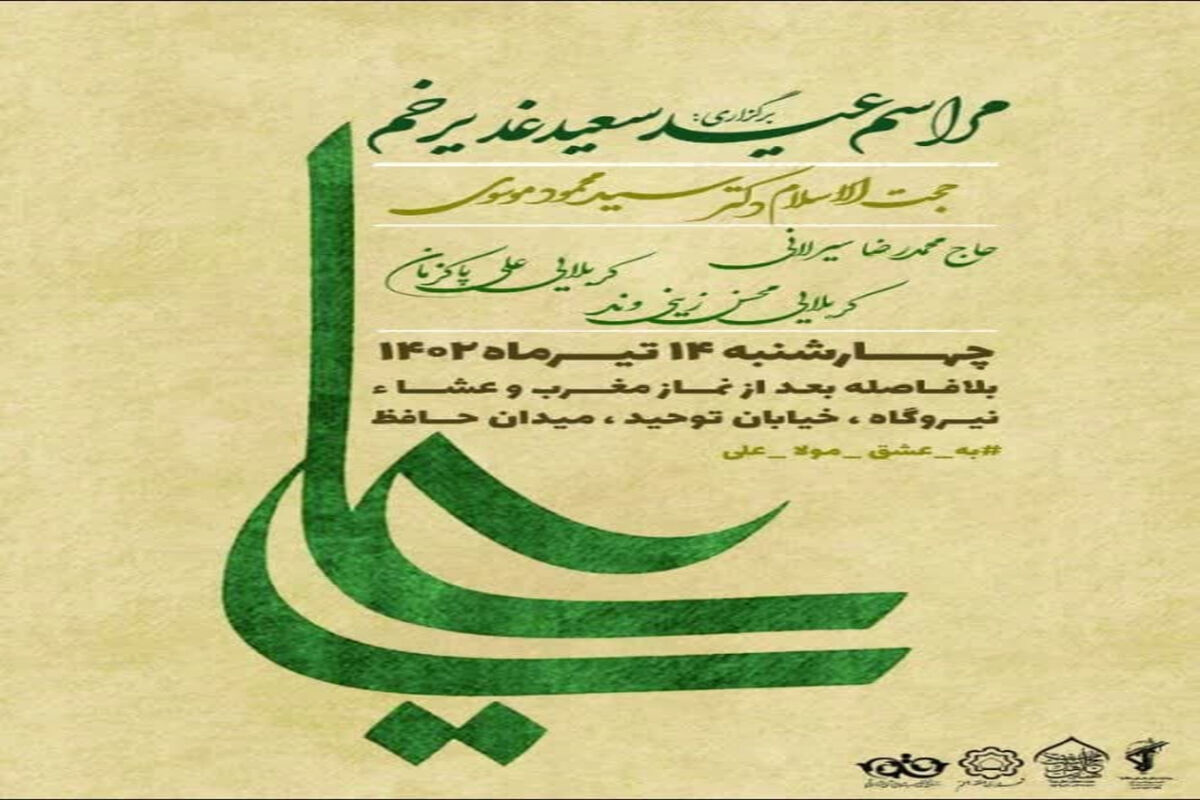 برگزاری:
مراسم عید سعید غدیر خم
حجت الاسلام دکتر سید محمود موسوی
حاج محمدرضا سیرلانی
کربلایی علی پاکزمان
کربلایی محسن زینی وند
چهارشنبه ۱۴ تیرماه ۱۴۰۲
بلافاصله بعد از نماز مغرب و عشاء
نیروگاه ، خیابان توحید ، میدان حافظ
#به_عشق_مولا_علی
علی